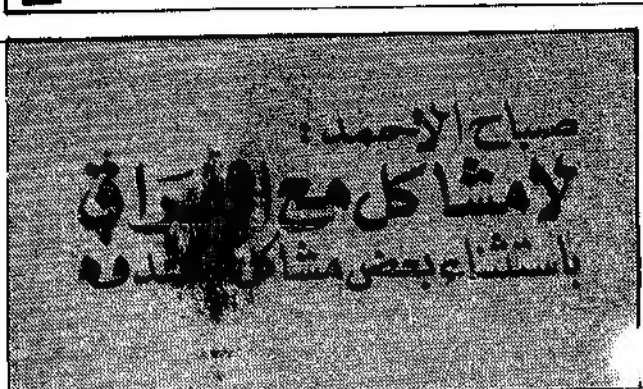 صباح الاحمد:
لا مشاكل مع العراق
باستثناء بعض مشاكل الحدود